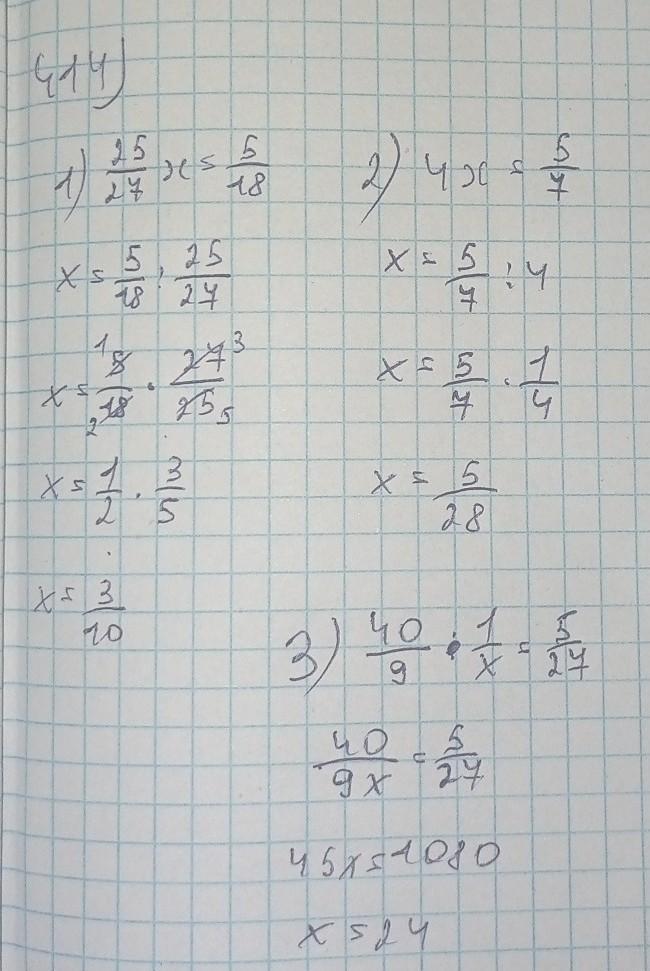 414)
1) 25/27 x = 5/18
x = 5/18 : 25/27
x = 5/18 · 27/25 1 2 3 5
x = 1/2 · 3/5
x = 3/10
2) 4x = 5/7
x = 5/7 : 4
x = 5/7 · 1/4
x = 5/28
3) 40/9 · 1/x = 5/27
40/9x = 5/27
45x = 1080
x = 24